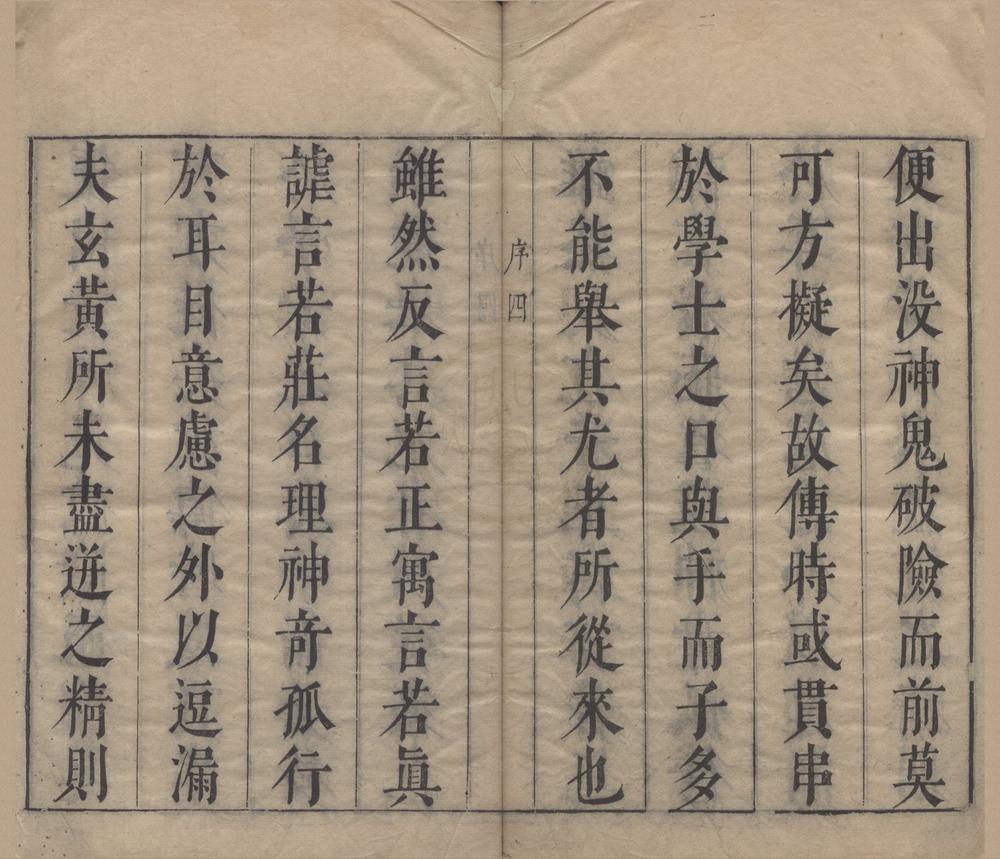 便出没神鬼破險而前莫
可方擬矣故傳時或貫串
於學士之口與手而子多
不能舉其尤者所從來也
序四
雖然反言若正寓言若眞
謔言若莊名理神奇孤行
於耳目意慮之外以逗漏
夫玄黃所未盡迸之精則